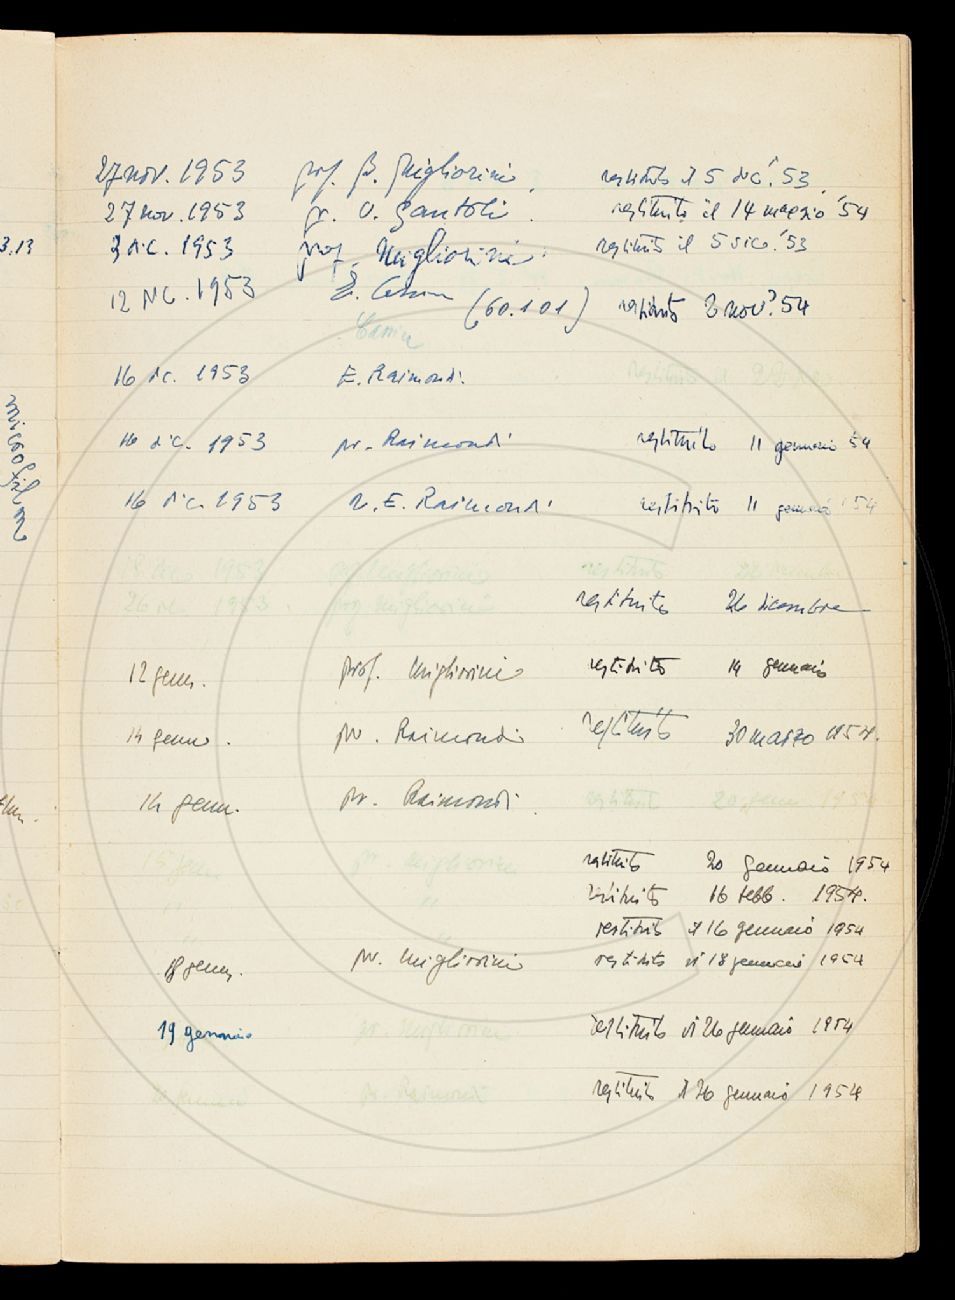 27 nov. 1953 prof. B. Migliorini restituito il 5 dic. '53
27 nov. 1953 pr. V. Santoli restituito il 14 maggio '54
3.13 3 dic. 1953 prof. Migliorini restituito il 5 dic. '53
12 dic. 1953 E. (60.101) restituito 2 nov. 54
16 dic. 1953 E. Raimondi restituito il
16 dic. 1953 pr. Raimondi restituito 11 gennaio 54
microfilm
16 dic. 1953 E. Raimondi restituito 11 gennaio '54
1953 Migliorini restituito
26 dic. 1953 prof. Migliorini restituito 26 dicembre
12 genn. prof. Migliorini restituito 14 gennaio
14 genn. pr. Raimondi restituito 30 marzo 1954.
14 genn. pr. Raimondi restituito 20 genn. 1954
15 genn. pr. Migliorini restituito 20 gennaio 1954
" " restituito 16 febb. 1954.
" " restituito il 16 gennaio 1954
18 genn. pr. Migliorini restituito il 18 gennaio 1954
19 gennaio pr. Migliorini restituito il 26 gennaio 1954
gennaio pr. Raimondi restituito il 26 gennaio 1954